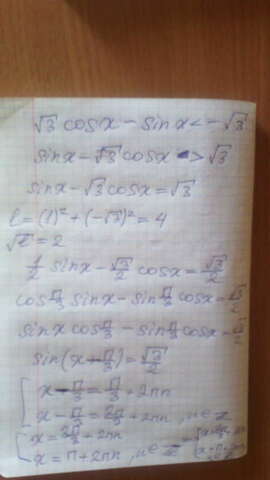 √3 cosx - sinx < -√3
sinx - √3 cosx > √3
sinx - √3 cosx = √3
l = (1)² + (-√3)² = 4
√l = 2
1/2 sinx - √3/2 cosx = √3/2
cos π/3 sinx - sin π/3 cosx = √3/2
sinx cos π/3 - sin π/3 cosx = √3/2
sin(x - π/3) = √3/2
[ x - π/3 = π/3 + 2πn
x - π/3 = 2π/3 + 2πn, n ∈ Z
[ x = 2π/3 + 2πn
x = π + 2πn, n ∈ Z